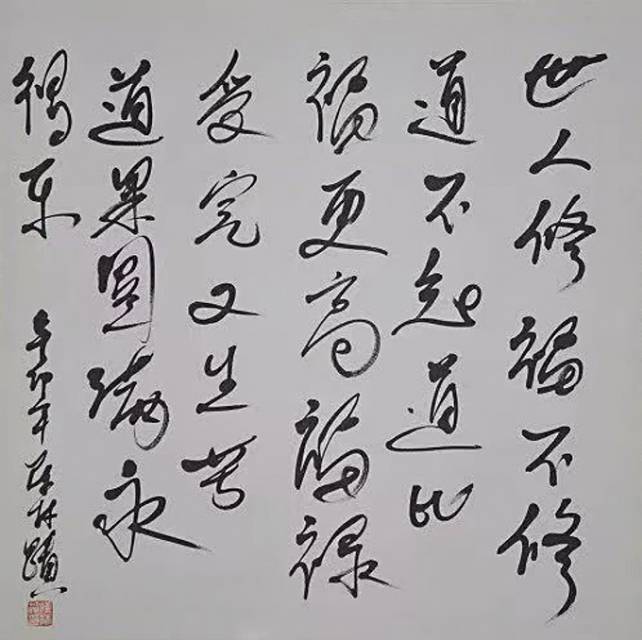 世人修福不修
道不知道比
福更高福禄
受完又生苦
道果圆满永
得乐
辛卯年